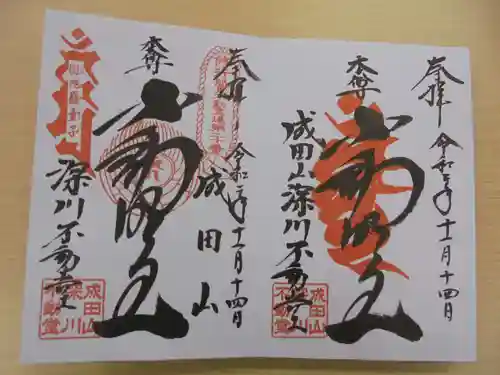 奉拝
令和
十一月十四日
本尊
不動明王
成田山深川不動堂
成田山
深川
不動堂
奉拝
令和
十一月十四日
成田山
本尊
不動明王
深川不動堂
成田山
深川
不動堂